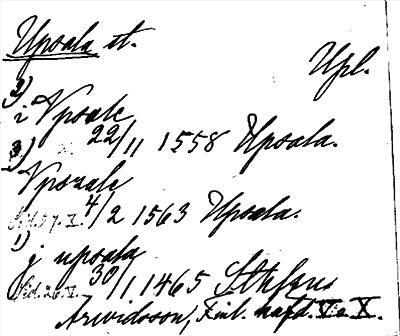 Upsala st.
Upl.
2)
i Vpsale
3) 22/11 1558 Upsala.
Vpsaale
4/2 1563 Upsala.
1)
j upsala
30/1 1465
Arwidsson, Finl. hafd. V. s. X.